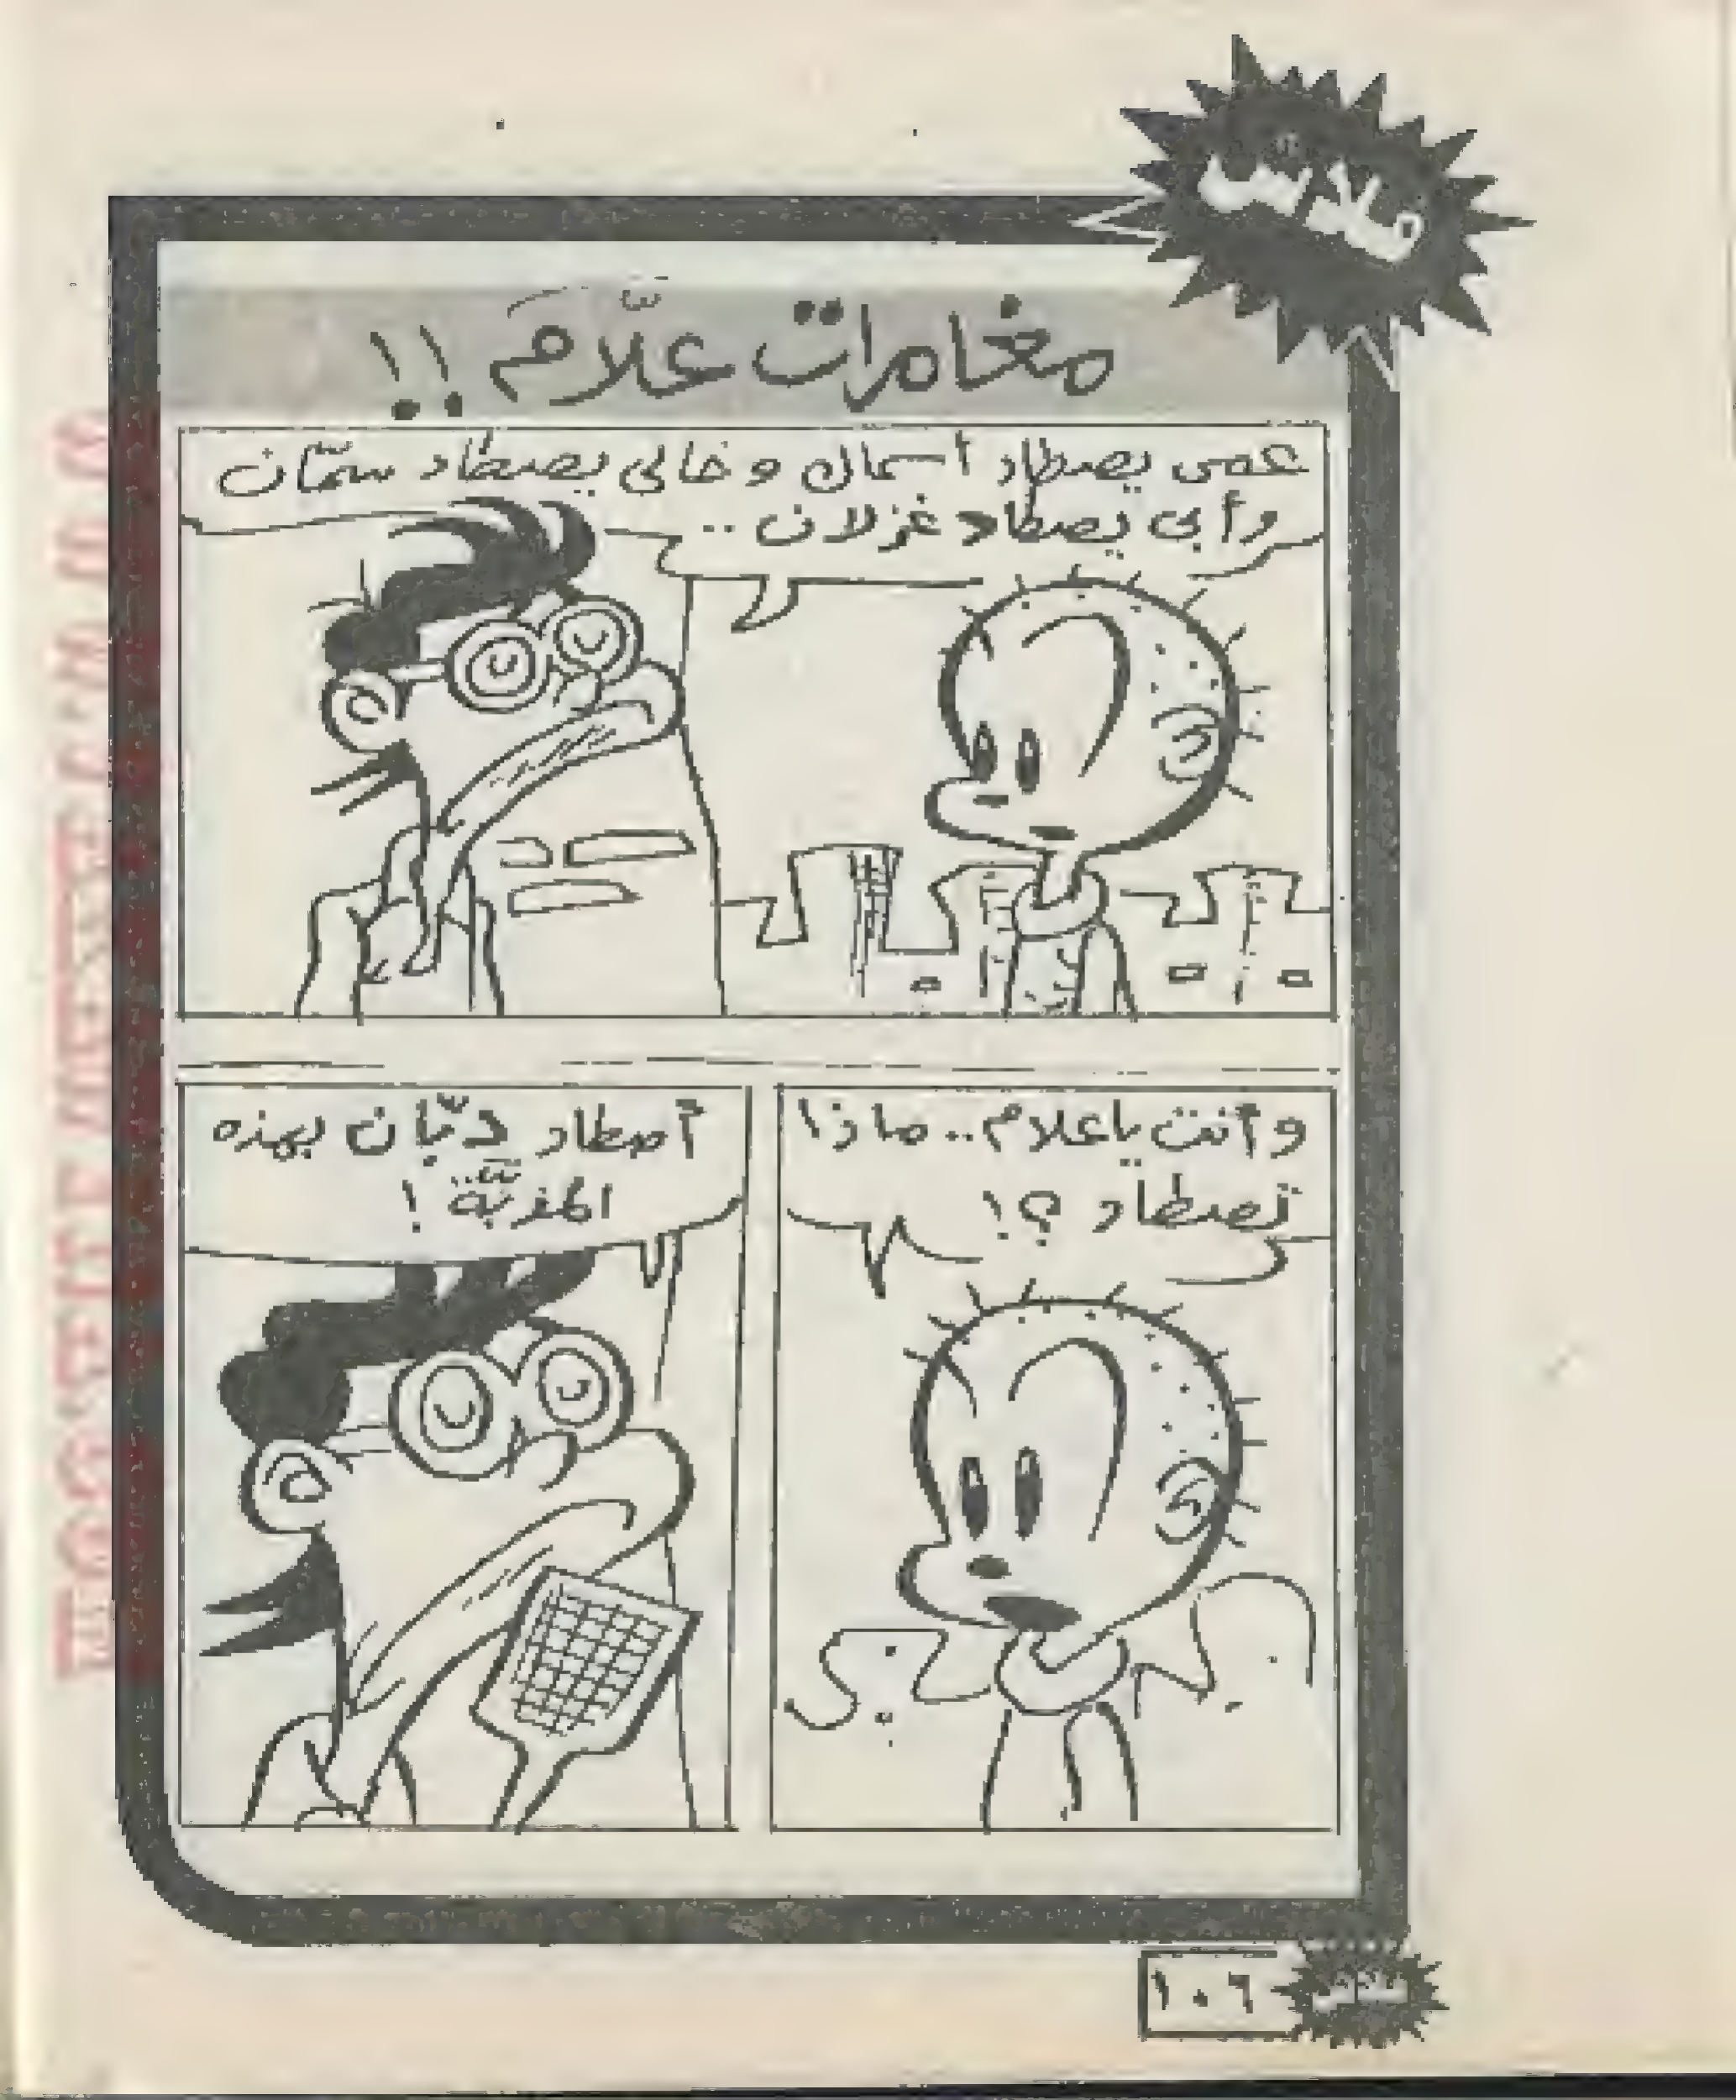 فلاش
مغامرات علّام !!
عمى يصطاد أسماك و خالى يصطاد سمّان
وأبى يصطاد غزلان ..
وأنت ياعلام .. ماذا
تصطاد ؟!
أصطاد دبّان بهذه
المذبّة !
١٠٦
فلاش